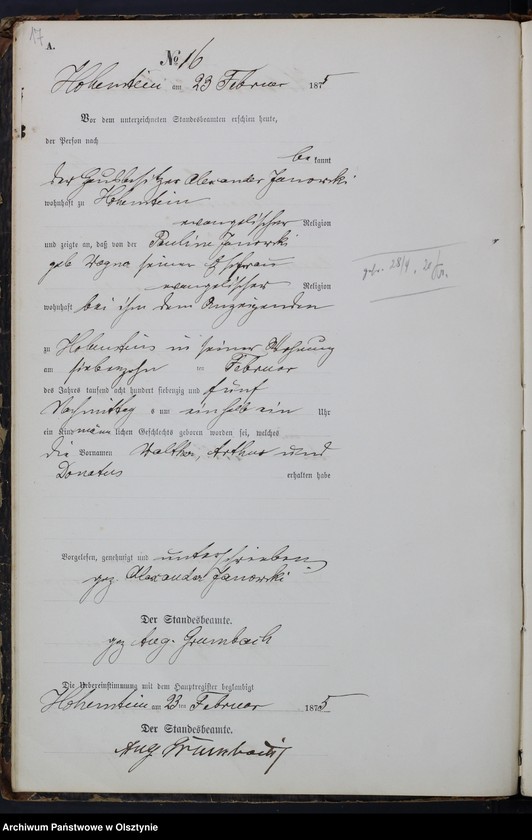 17
A.
No 16
Hohenstein am 23 Februar 1875
Vor dem unterzeichneten Standesbeamten erschien heute,
der Person nach
be kannt
der Alexander Janowski
wohnhaft zu Hohenstein
evangelischer Religion
und zeigte an, daß von der Pauline Janowski
geb seiner Ehefrau
evangelischer Religion
wohnhaft bei ihm dem Anzeigenden
zu Hohenstein in seiner Wohnung
am siebenzehn ten Februar
des Jahres tausend acht hundert siebenzig und fünf
Nachmittag s um einhalb ein Uhr
ein Kind männ lichen Geschlechts geboren worden sei, welches
die Vornamen Walther, Arthur und
Donatus erhalten habe
Vorgelesen, genehmigt und unterschrieben
gez Alexander Janowski
Der Standesbeamte.
gez Aug. Grumbach
Die Uebereinstimmung mit dem Hauptregister beglaubigt
Hohenstein am 23 ten Februar 1875
Der Standesbeamte.
Aug. Grumbach
Archiwum Państwowe w Olsztynie